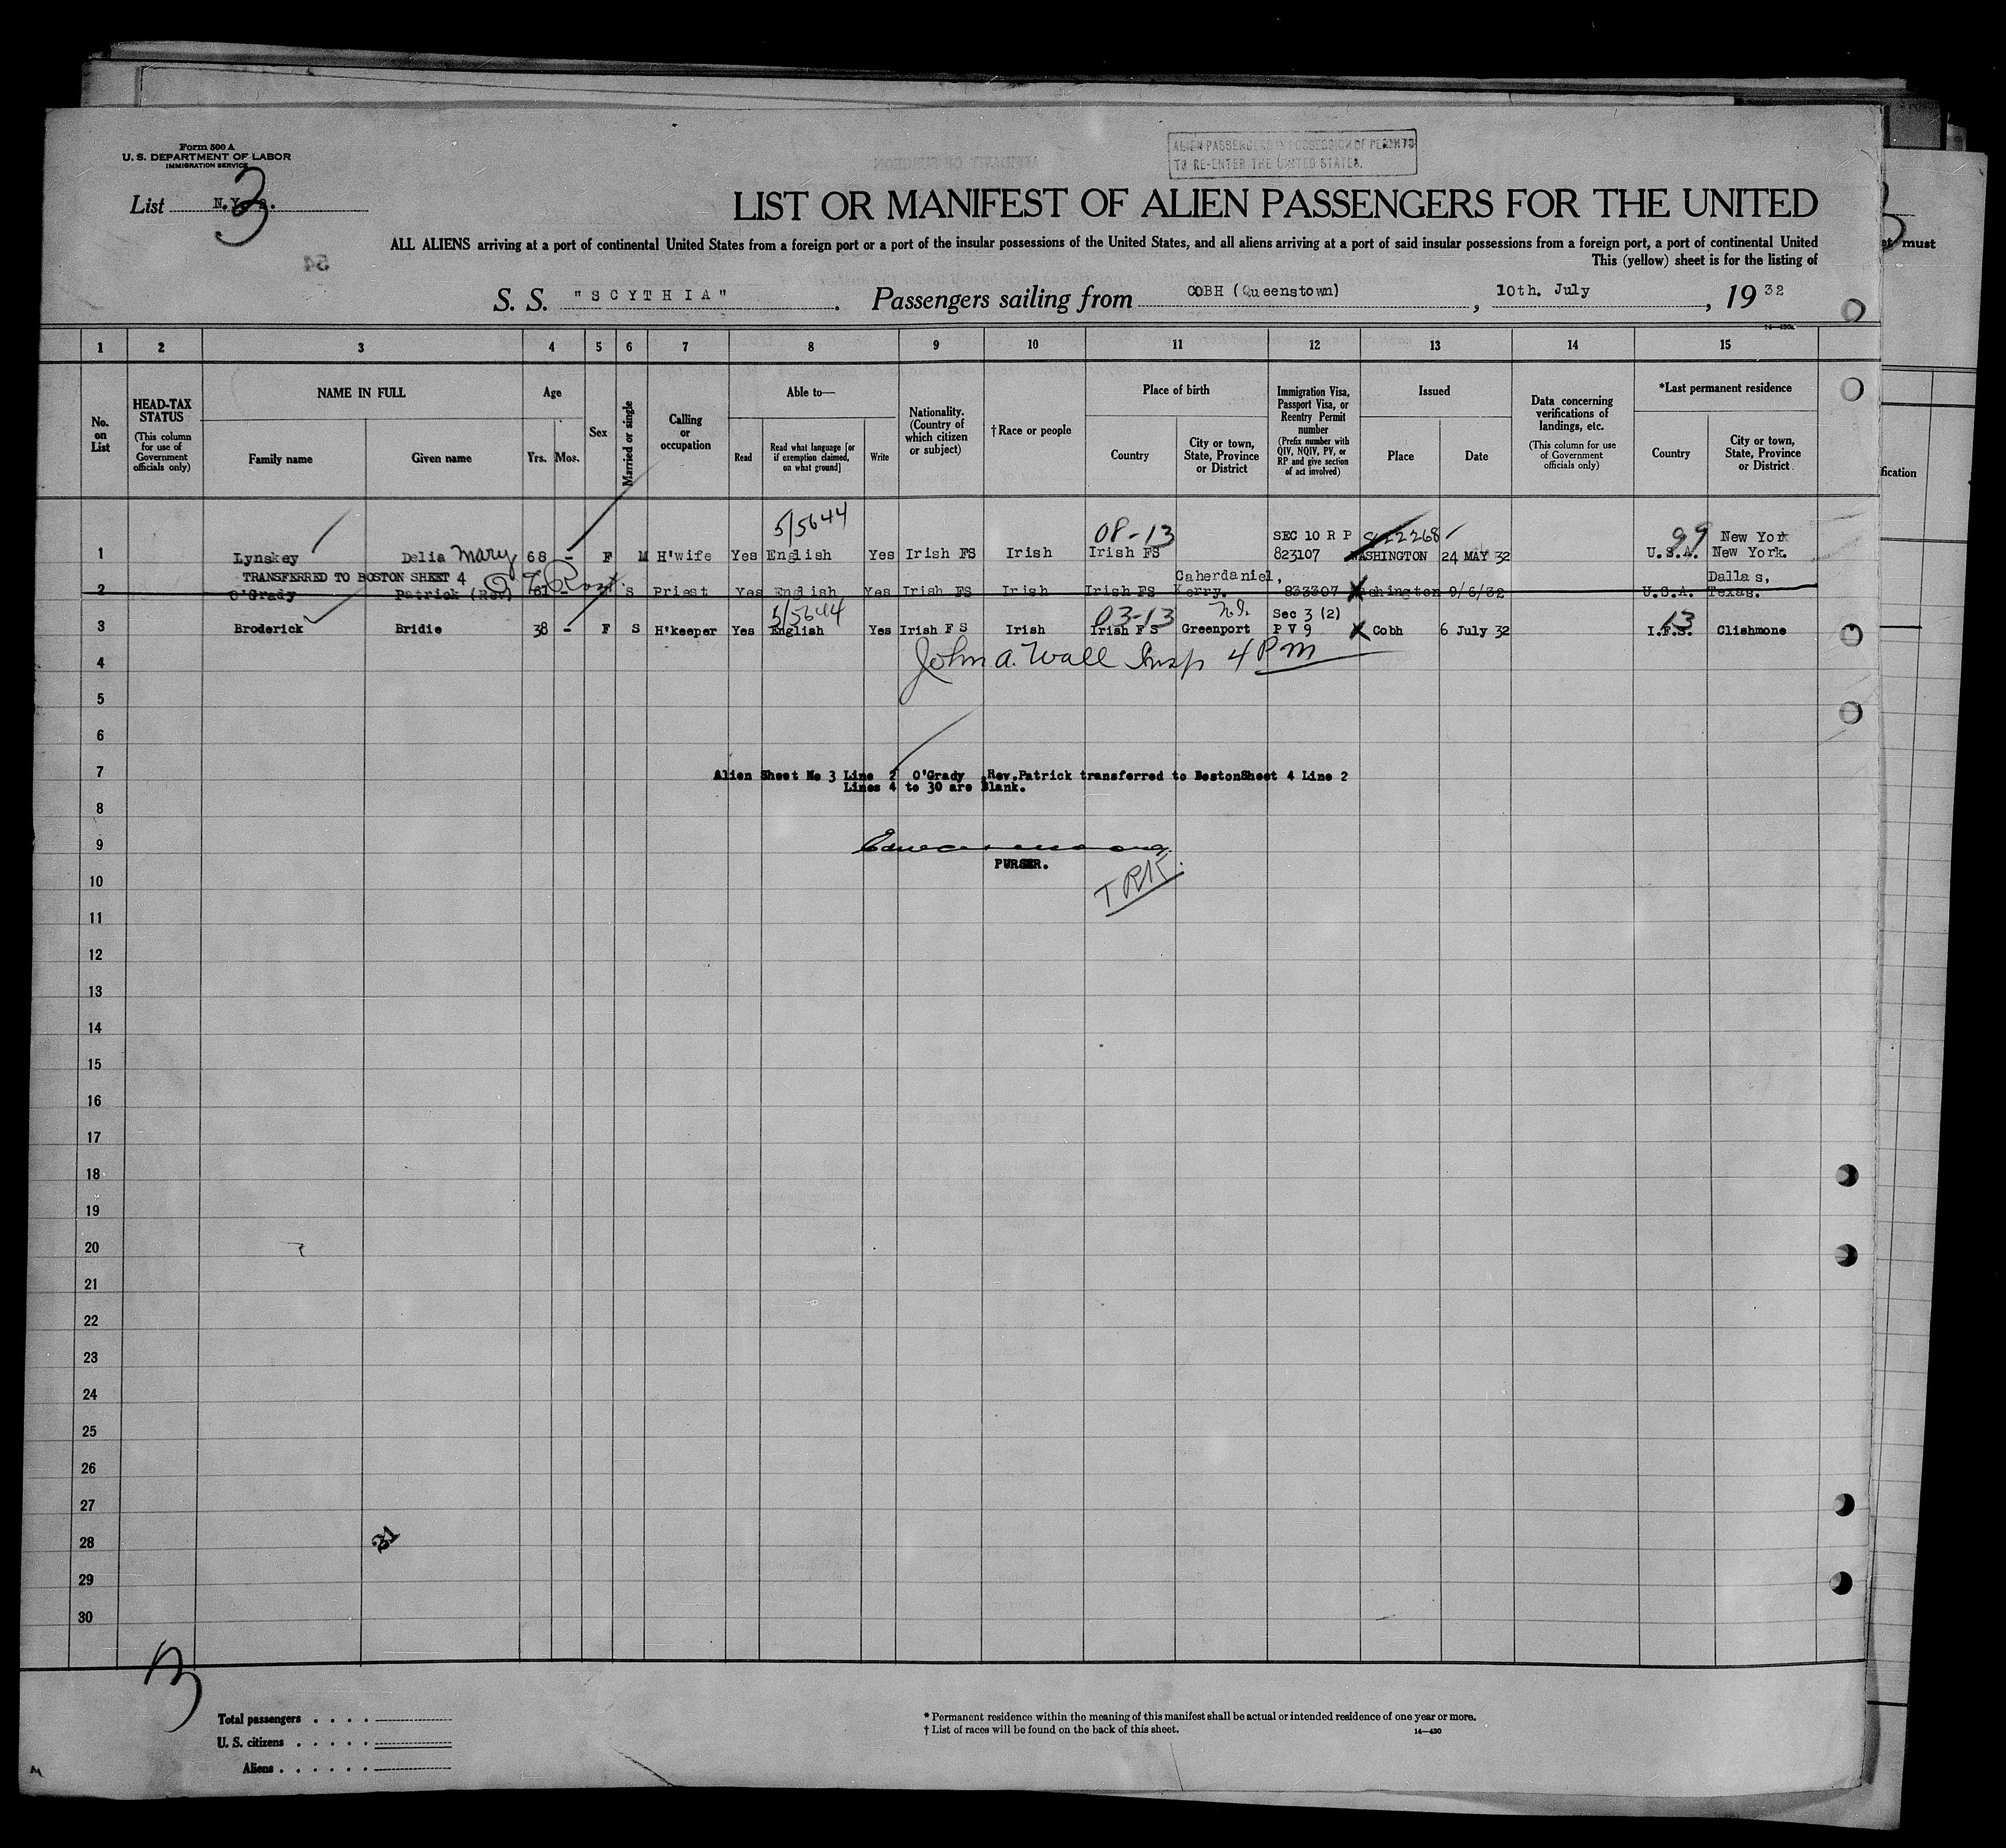 Form 500 A
U. S. DEPARTMENT OF LABOR
IMMIGRATION SERVICE
ALIEN PASSENGERS IN POSSESSION OF PERMITS
TO RE-ENTER THE UNITED STATES.
List N.Y. 3
LIST OR MANIFEST OF ALIEN PASSENGERS FOR THE UNITED
ALL ALIENS arriving at a port of continental United States from a foreign port or a port of the insular possessions of the United States, and all aliens arriving at a port of said insular possessions from a foreign port, a port of continental United
This (yellow) sheet is for the listing of
must
54
S. S. "SCYTHIA". Passengers sailing from COBH (Queenstown), 10th. July, 1932
14—430a
1 2 3 4 5 6 7 8 9 10 11 12 13 14 15
No. on List
HEAD-TAX STATUS (This column for use of Government officials only)
NAME IN FULL
Family name
Given name
Age
Yrs. Mos.
Sex
Married or single
Calling or occupation
Able to—
Read
Read what language [or if exemption claimed, on what ground]
Write
Nationality. (Country of which citizen or subject)
†Race or people
Place of birth
Country
City or town, State, Province or District
Immigration Visa, Passport Visa, or Reentry Permit number (Prefix number with QIV, NQIV, PV, or RP and give section of act involved)
Issued
Place
Date
Data concerning verifications of landings, etc. (This column for use of Government officials only)
*Last permanent residence
Country
City or town, State, Province or District
fication
5/5644 08-13 SEC 10 R P 99 New York
1 Lynskey Delia Mary 68 - F M H'wife Yes English Yes Irish FS Irish Irish FS 823107 WASHINGTON 24 MAY 32 U.S.A. New York.
TRANSFERRED TO BOSTON SHEET 4 Caherdaniel, Dallas,
2 O'Grady Patrick (Rev) 61 - S Priest Yes English Yes Irish FS Irish Irish FS Kerry. 833307 Washington 9/6/32 U.S.A. Texas.
5/5644 03-13 Sec 3 (2) 13
3 Broderick Bridie 38 - F S H'keeper Yes English Yes Irish F S Irish Irish F S Greenport P V 9 Cobh 6 July 32 I.F.S. Clishmone
4 John A. Wall Insp 4 Pm
5
6
7 Alien Sheet No 3 Line 2 O'Grady ,Rev.Patrick transferred to BostonSheet 4 Line 2
Lines 4 to 30 are Blank.
8
9
PURSER.
10
11
12
13
14
15
16
17
18
19
20
21
22
23
24
25
26
27
28 31
29
30
3
Total passengers . . . .
U. S. citizens . . . . .
Aliens . . . . . .
* Permanent residence within the meaning of this manifest shall be actual or intended residence of one year or more.
† List of races will be found on the back of this sheet.
14—430